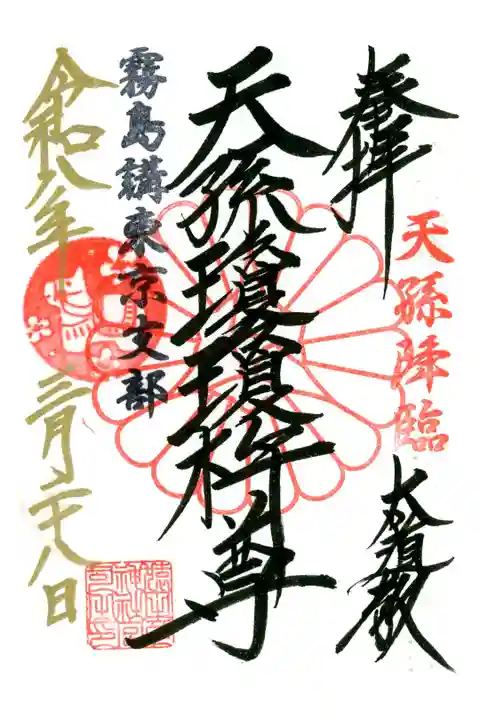 奉拝
天孫降臨
大道教
天孫瓊瓊杵尊
霧島講東京支部
令和八年 三月二十八日